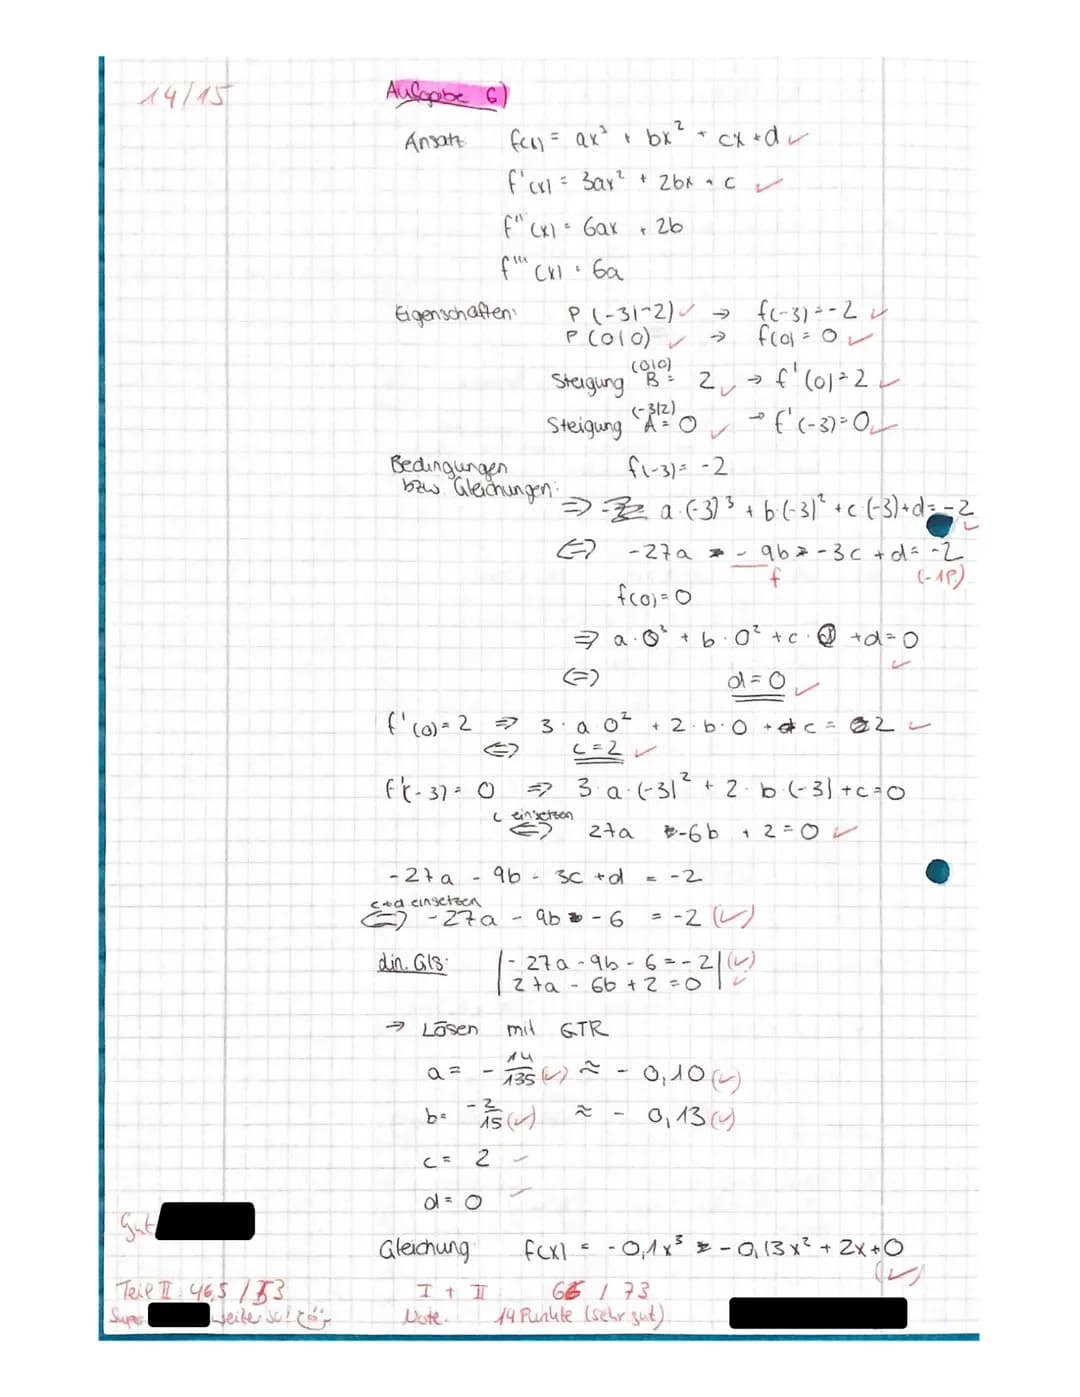 14/15
Aufgabe 6)
Ansatz: f(x) = ax³ + bx² + cx + d ✓
f'(x) = 3ax² + 2bx + c ✓
f''(x) = 6ax + 2b
f'''(x) = 6a
Eigenschaften: P (-3|-2) ✓ → f(-3) = -2 ✓
P (0|0) ✓ → f(0) = 0 ✓
Steigung B (0|0) = 2 ✓ → f'(0) = 2 ✓
Steigung A (-3|2) = 0 ✓ → f'(-3) = 0 ✓
Bedingungen f(-3) = -2
bzw. Gleichungen:
=> a·(-3)³ + b·(-3)² + c·(-3) + d = -2 ✓
<=> -27a - 9b - 3c + d = -2
f (-1P.)
f(0) = 0
=> a·0³ + b·0² + c·0 + d = 0 ✓
<=> d = 0 ✓
f'(0) = 2 => 3·a 0² + 2·b·0 + c = 2 ✓
<=> c = 2 ✓
f'(-3) = 0 => 3·a·(-3)² + 2·b·(-3) + c = 0
c einsetzen
<=> 27a - 6b + 2 = 0 ✓
-27a - 9b - 3c + d = -2
c+d einsetzen
<=> -27a - 9b - 6 = -2 (✓)
lin. Gls: | -27a - 9b - 6 = -2 | (✓)
| 27a - 6b + 2 = 0 | ✓
→ Lösen mit GTR
a = - 14/135 (✓) ≈ - 0,10 (✓)
b = -2/15 (✓) ≈ - 0,13 (✓)
c = 2 ✓
d = 0 ✓
Gut
Gleichung f(x) = -0,1x³ - 0,13x² + 2x + 0
(✓)
Teil II: 46,5 / 53 I + II 66 / 73
Super weiter so! Note: 14 Punkte (sehr gut)